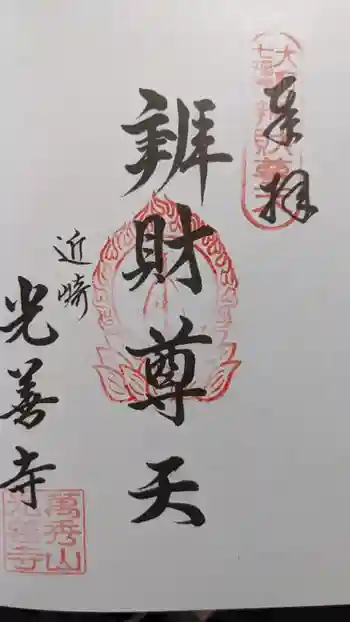 奉拝
辨財尊天
近崎
光善寺
萬秀山
光善寺